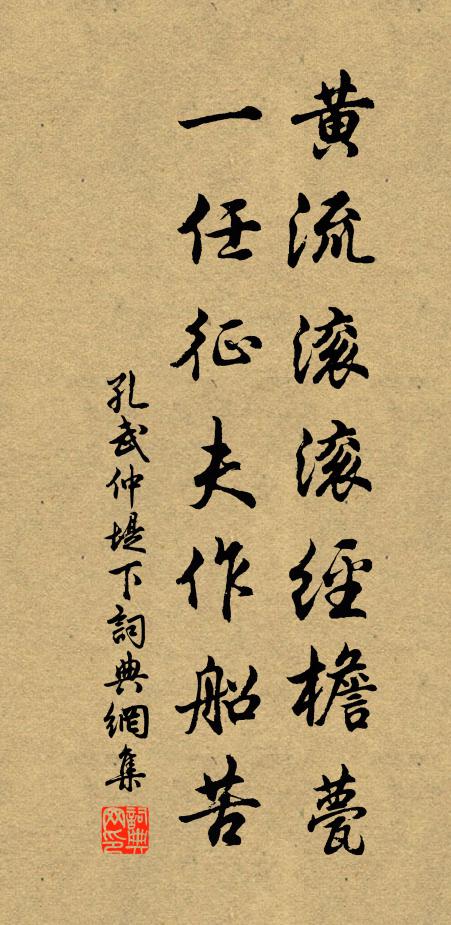 黄流滚滚經檐甍
一任征夫作船苦
孔武仲堤下詞典網集
詞典网印